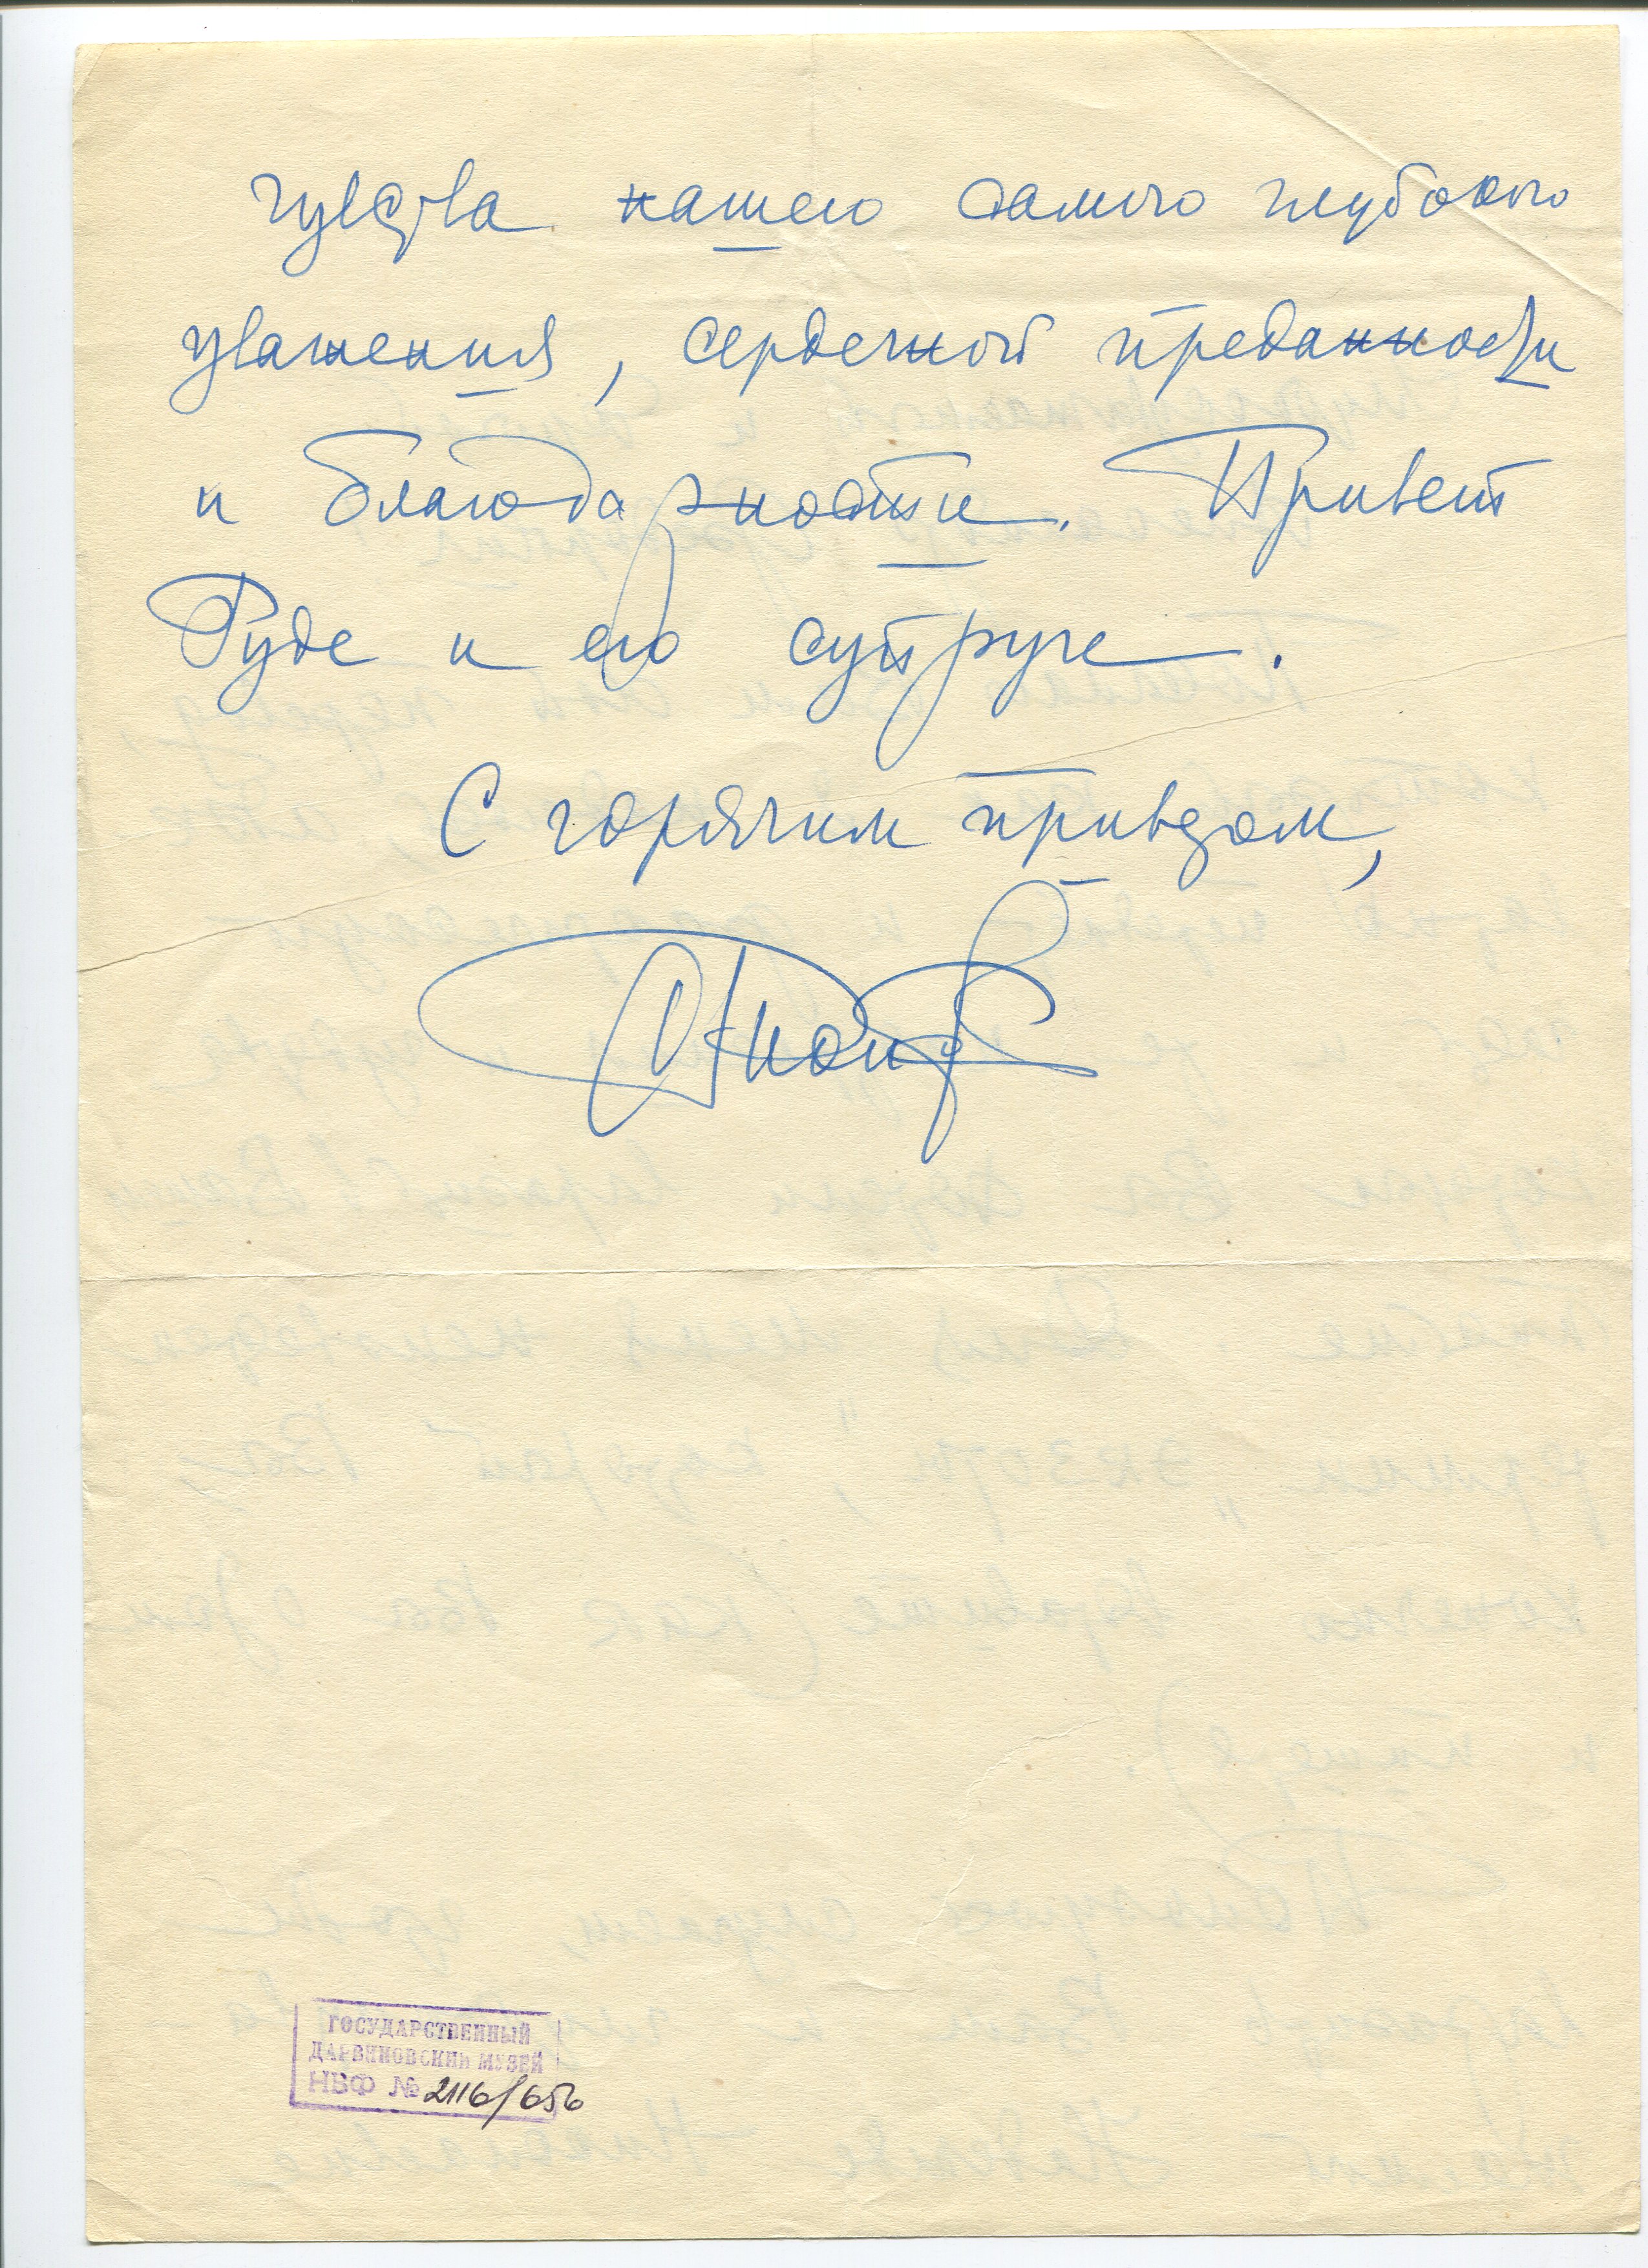 чувства нашего самого глубокого
уважения, сердечной преданности
и благодарности. Привет
Руде и его супруге.
С горячим приветом,
ГОСУДАРСТВЕННЫЙ
ДАРВИНОВСКИЙ МУЗЕЙ
НВФ № 2116/656